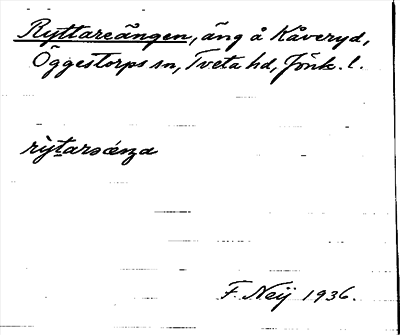 Ryttareängen, äng å Kåveryd,
Öggestorps sn, Tveta hd, Jönk. l.
rỳtarǝéŋa
F. Neij 1936.